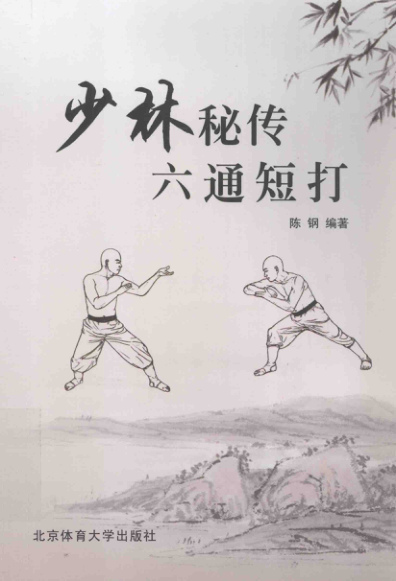 少林秘传
六通短打
陈 钢 编著
北京体育大学出版社